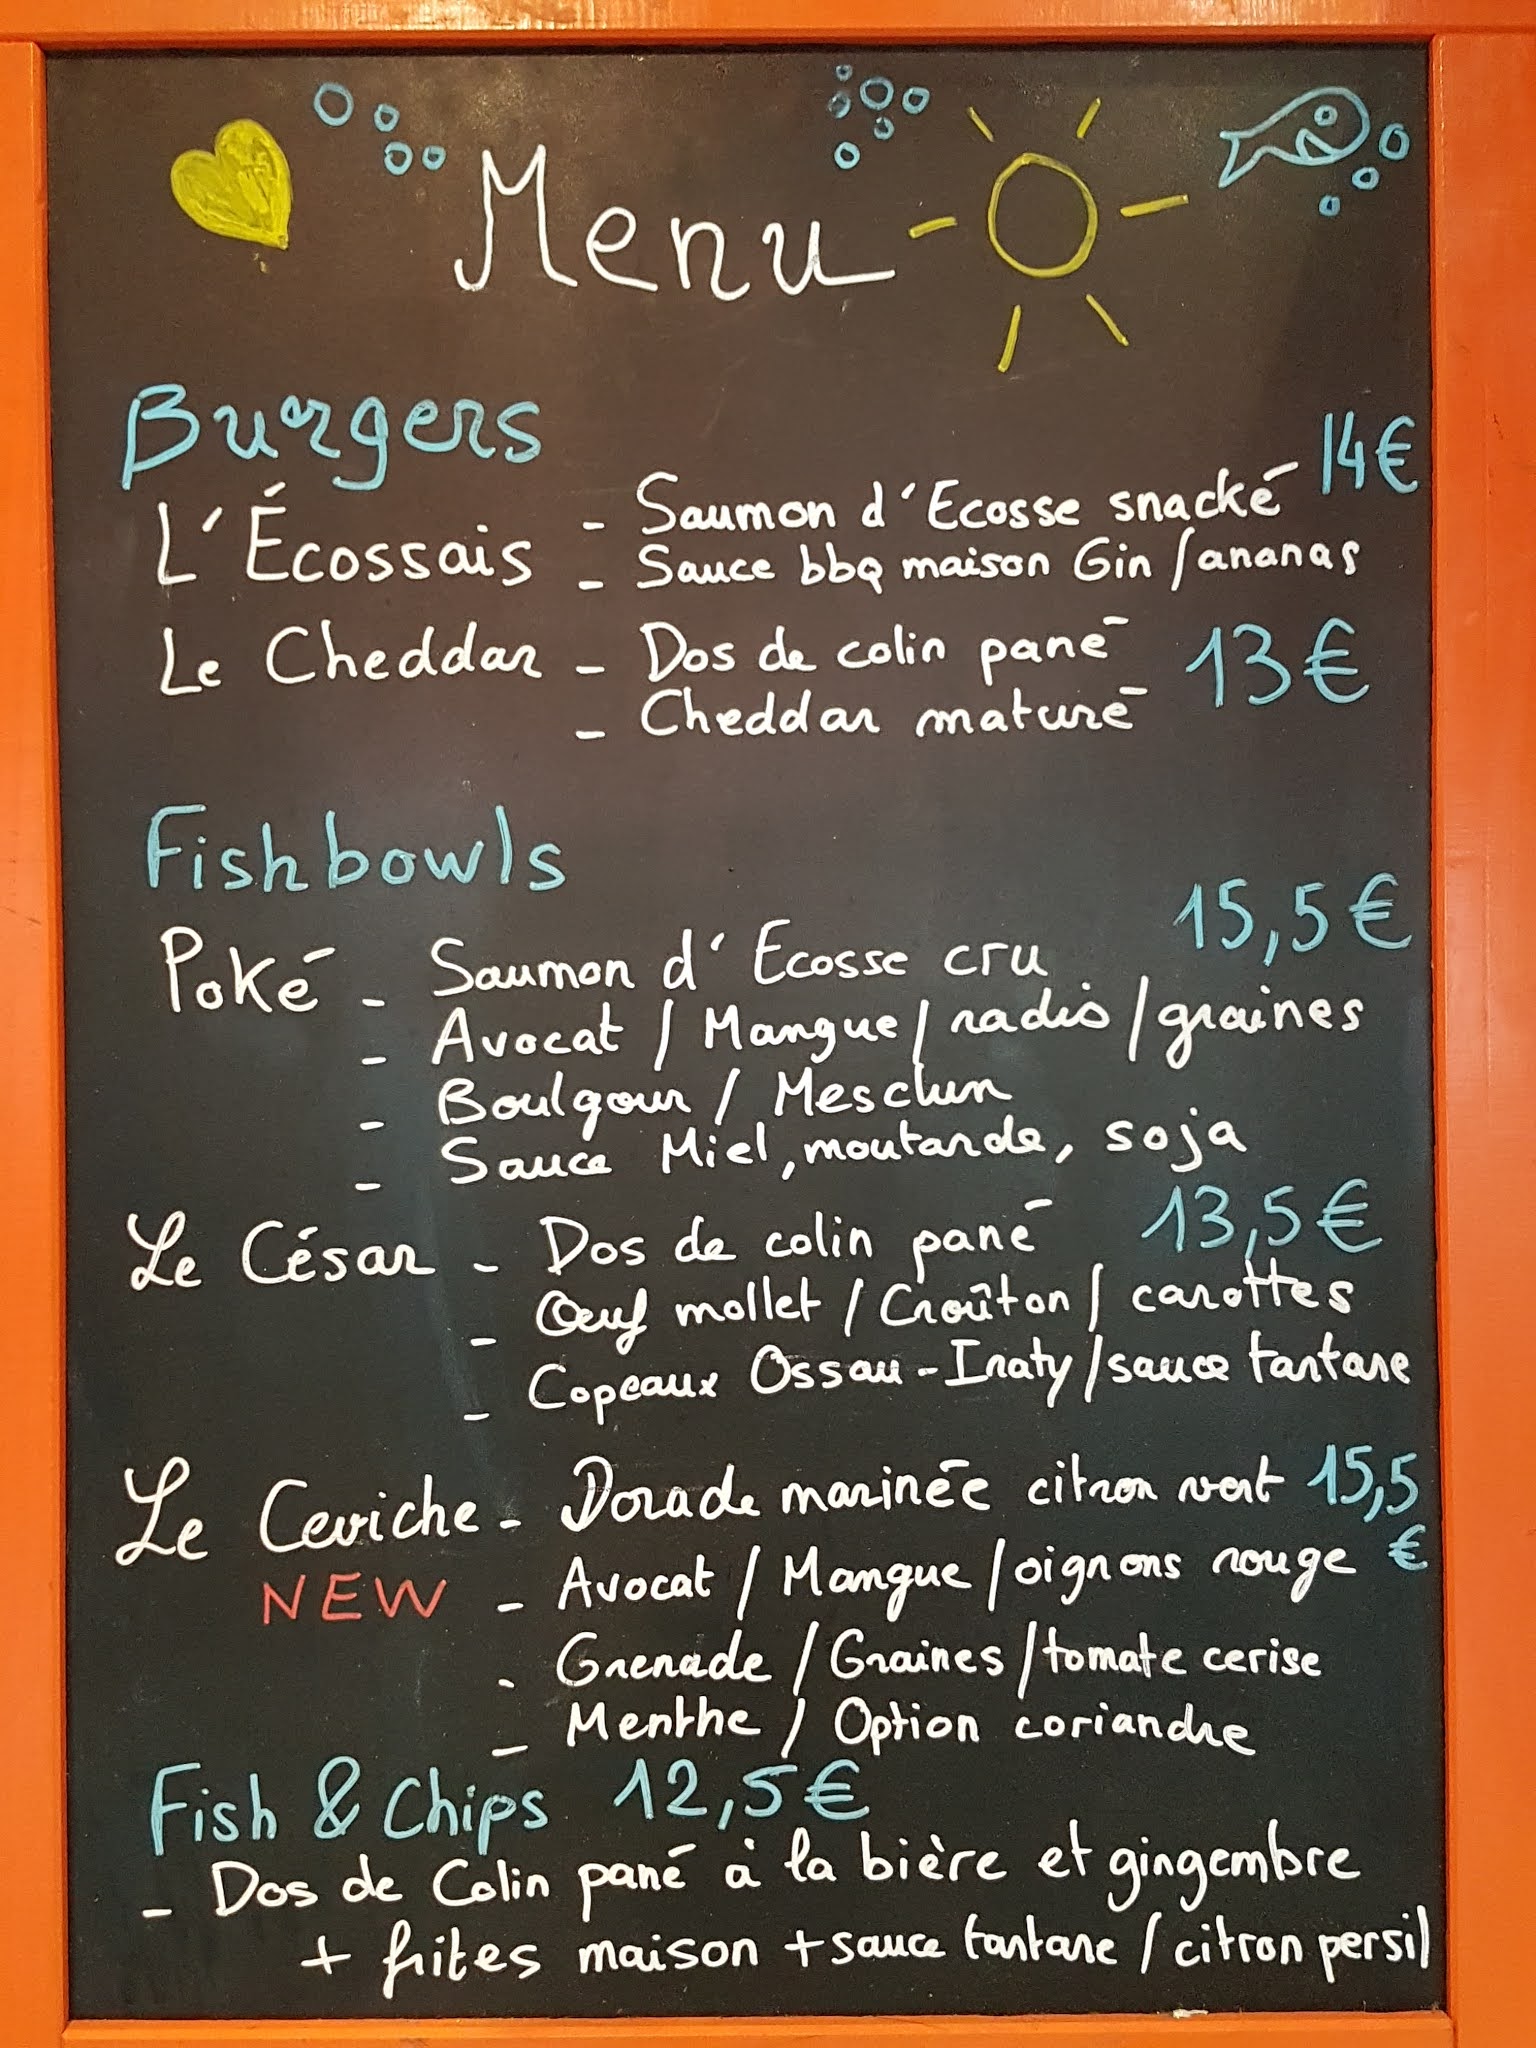 Menu
Burgers
L'Écossais - Saumon d'Ecosse snacké 14€
- Sauce bbq maison Gin / ananas
Le Cheddar - Dos de colin pané 13€
- Cheddar maturé
Fishbowls
Poké - Saumon d'Ecosse cru 15,5€
- Avocat / Mangue / radis / graines
- Boulgour / Mesclun
- Sauce Miel, moutarde, soja
Le César - Dos de colin pané 13,5€
- Œuf mollet / Croûton / carottes
- Copeaux Ossau-Iraty / sauce tartare
Le Ceviche - Dorade marinée citron vert 15,5
NEW - Avocat / Mangue / oignons rouge €
- Grenade / Graines / tomate cerise
- Menthe / Option coriandre
Fish & Chips 12,5€
- Dos de Colin pané à la bière et gingembre
+ frites maison + sauce tartare / citron persil